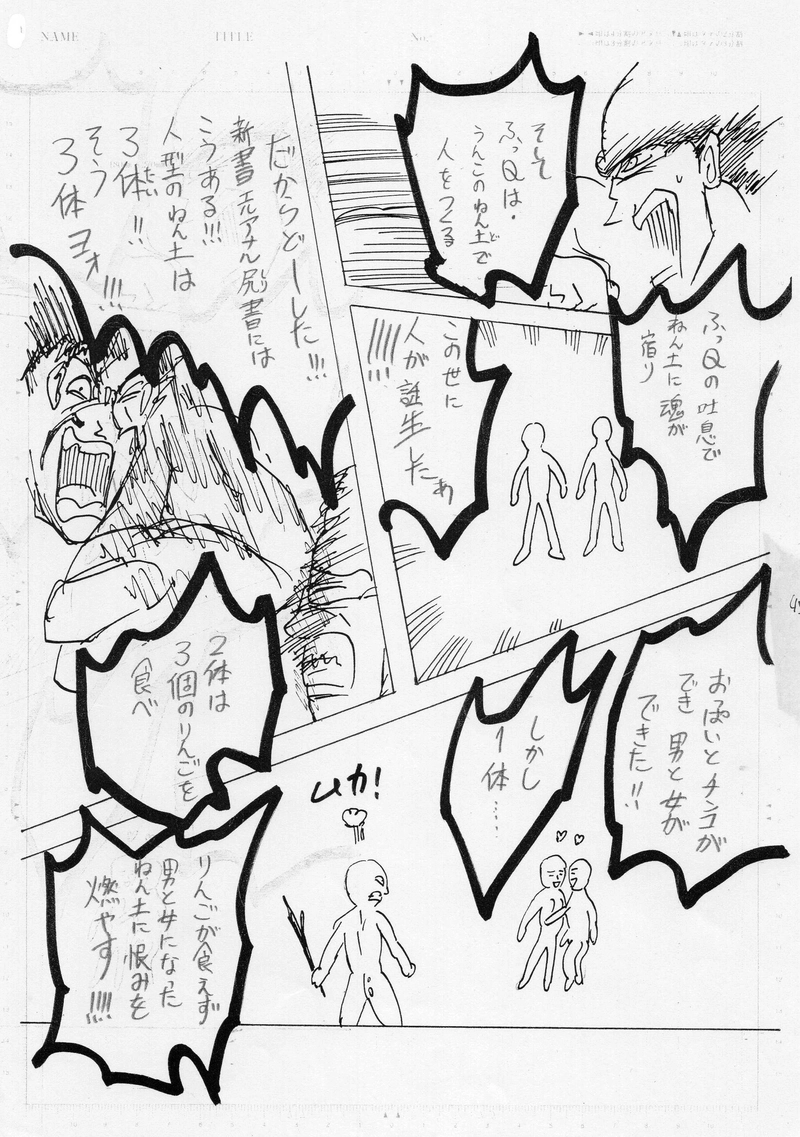 NAME
TITLE
No.
そして
ふっQは・
うんこのねん土で
人をつくる
ふっQの吐息で
ねん土に魂が
宿り
この世に
人が誕生したぁ
!!!!!
だからどーした!!!
新書エルアナル尻書には
こうある!!!
人型のねん土は
3体!!
そう
3体ヨォ!!!
おっぱいとチンコが
でき男と女が
できた!!
しかし
1体…
2体は
3個のりんごを
食べ
ムカ!
りんごが食えず
男と女になった
ねん土に恨みを
燃やす!!!!